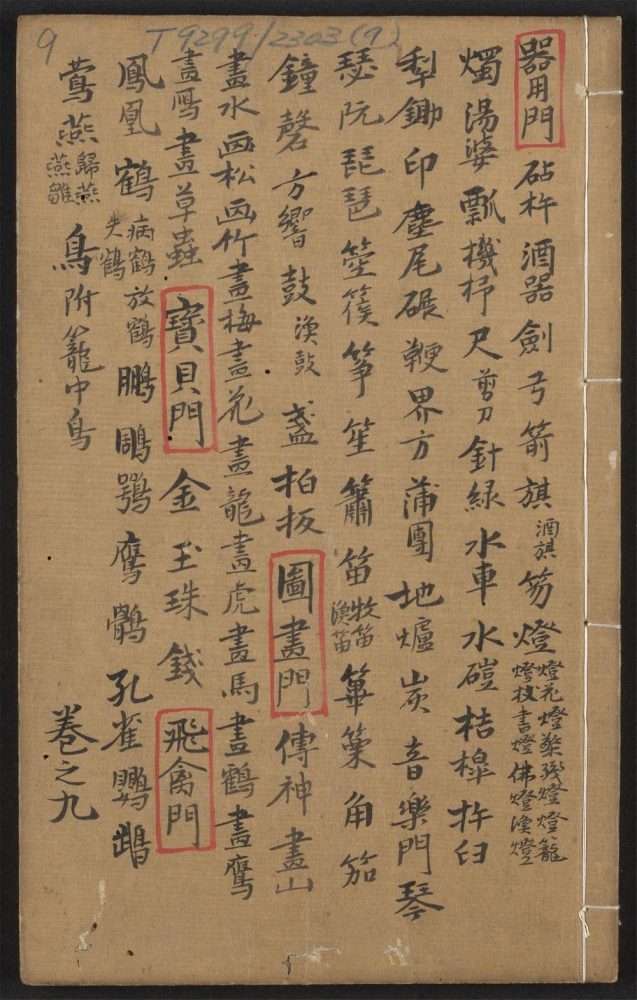 9
T 9299/2303(9)
器用門 砧杵 酒器 劍 弓 箭 旗 酒旗 笏 燈 燈花 燈檠 殘燈 燈籠 燈杖 書燈 佛燈 漁燈
燭 湯婆 瓢 機杼 尺 剪刀 針線 水車 水磑 桔槹 杵臼
犁鋤 印 麈尾 碾 鞭 界方 蒲團 地爐 炭 音樂門 琴
瑟 阮 琵琶 箜篌 箏 笙 簫 笛 牧笛 漁笛 篳篥 角 笳
鐘 磬 方響 鼓 漁鼓 盞 拍板 圖畫門 傳神 畫山
畫水 画松 画竹 畫梅 畫花 畫龍 畫虎 畫馬 畫鶴 畫鷹
畫鴈 畫草蟲 寶貝門 金 玉 珠 錢 飛禽門
鳳凰 鶴 病鶴 失鶴 放鶴 鵬 鵰 鶚 鷹 鶻 孔雀 鸚鵡
鶯 燕 歸燕 燕雛 鳥 附籠中鳥
卷之九